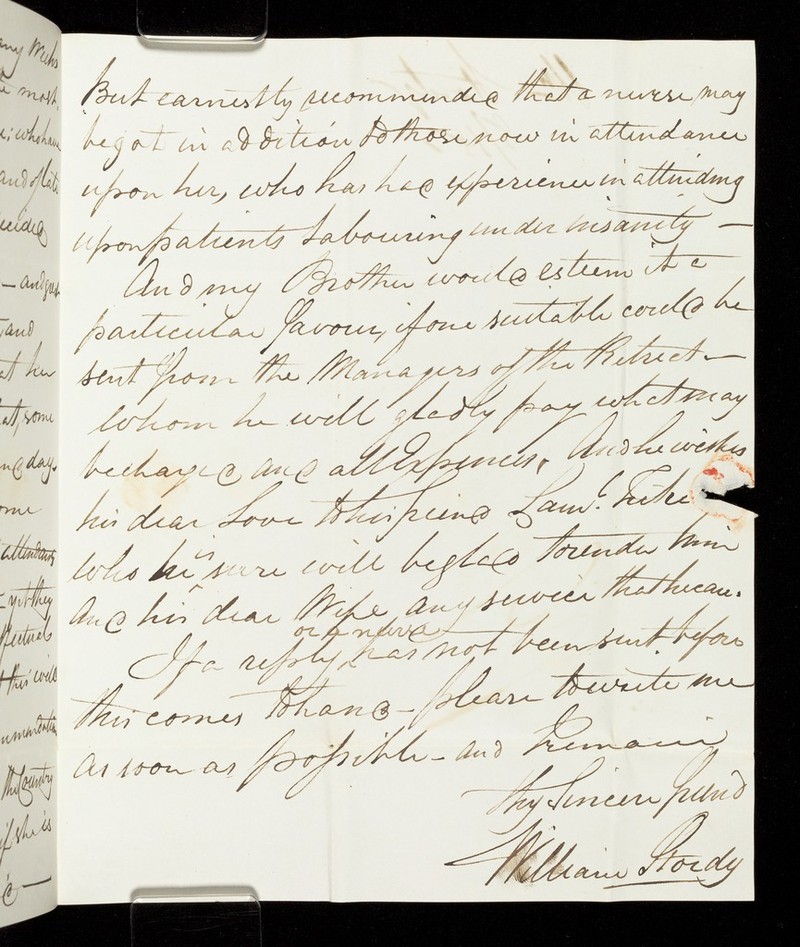 any Weeks
e most
e; who have
and of late
ecided
– and
, and
at her
that, some
and day.
ome
attendants
– yet they
ffectual
t this will
ommendation
the Country
if she is
But earnestly recommended that a nurse, may
be got in addition to those now in attendance
upon her, who has had experience in attending
upon patients Labouring under insanity –
And my Brother would esteem it a
particular favour, if one suitable could be
sent from the Managers of the Retreat –
whom he will gladly pay what may
be charged and all Expences. And he wishes
his dear Love to his friend Saml. Tuke
who he is sure will be glad to render him
and his dear Wife any service that he can.
or a nurse
If a reply, has not been sent before
this comes to hand – please to write me
as soon as possible – and I remain
thy Sincere friend
William Stordy